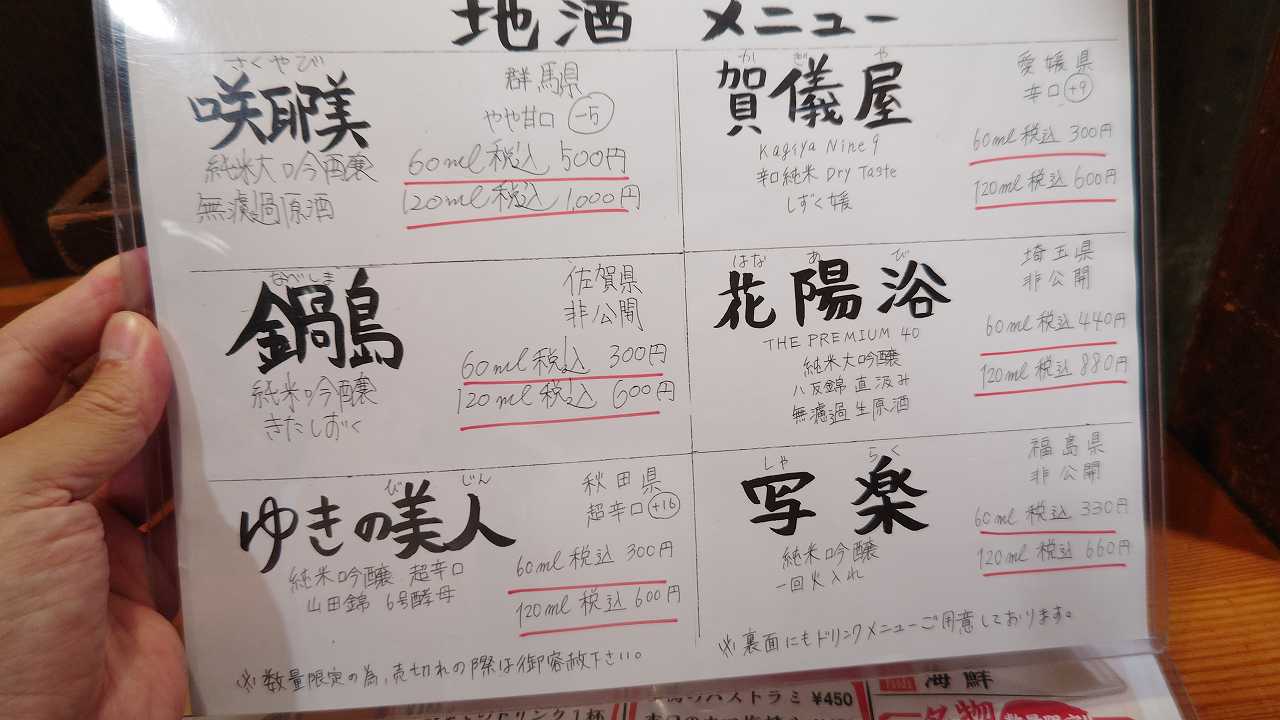 地酒 メニュー
さくやび
咲耶美
純米大吟醸
無濾過原酒
群馬県
やや甘口 -5
60ml 税込 500円
120ml 税込 1,000円
かぎや
賀儀屋
Kagiya Nine 9
辛口純米 Dry Taste
しずく媛
愛媛県
辛口 +9
60ml 税込 300円
120ml 税込 600円
なべしま
鍋島
純米吟醸
きたしずく
佐賀県
非公開
60ml 税込 300円
120ml 税込 600円
はなあび
花陽浴
THE PREMIUM 40
純米大吟醸
八反錦 直汲み
無濾過生原酒
埼玉県
非公開
60ml 税込 440円
120ml 税込 880円
びじん
ゆきの美人
純米吟醸 超辛口
山田錦 6号酵母
秋田県
超辛口 +16
60ml 税込 300円
120ml 税込 600円
しゃらく
写楽
純米吟醸
一回火入れ
福島県
非公開
60ml 税込 330円
120ml 税込 660円
※数量限定の為、売切れの際は御容赦下さい。
※裏面にもドリンクメニューご用意しております。
パストラミ ¥450
海鮮